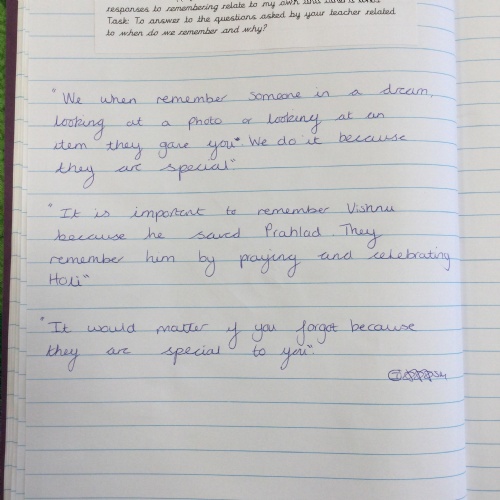 responses to remembering relate to my own and
Task: To answer to the questions asked by your teacher related
to when do we remember and why?
"We when remember someone in a dream,
looking at a photo or looking at an
item they gave you". We do it because
they are special"
"It is important to remember Vishnu
because he saved Prahlad. They
remember him by praying and celebrating
Holi"
"It would matter if you forgot because
they are special to you".